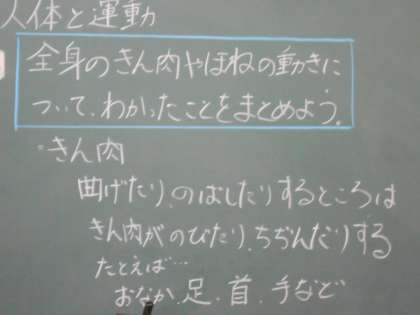 人体と運動
全身のきん肉やほねの動きに
ついて、わかったことをまとめよう。
・きん肉
曲げたり、のばしたりするところは
きん肉がのびたり、ちぢんだりする
たとえば…
おなか、足、首、手など